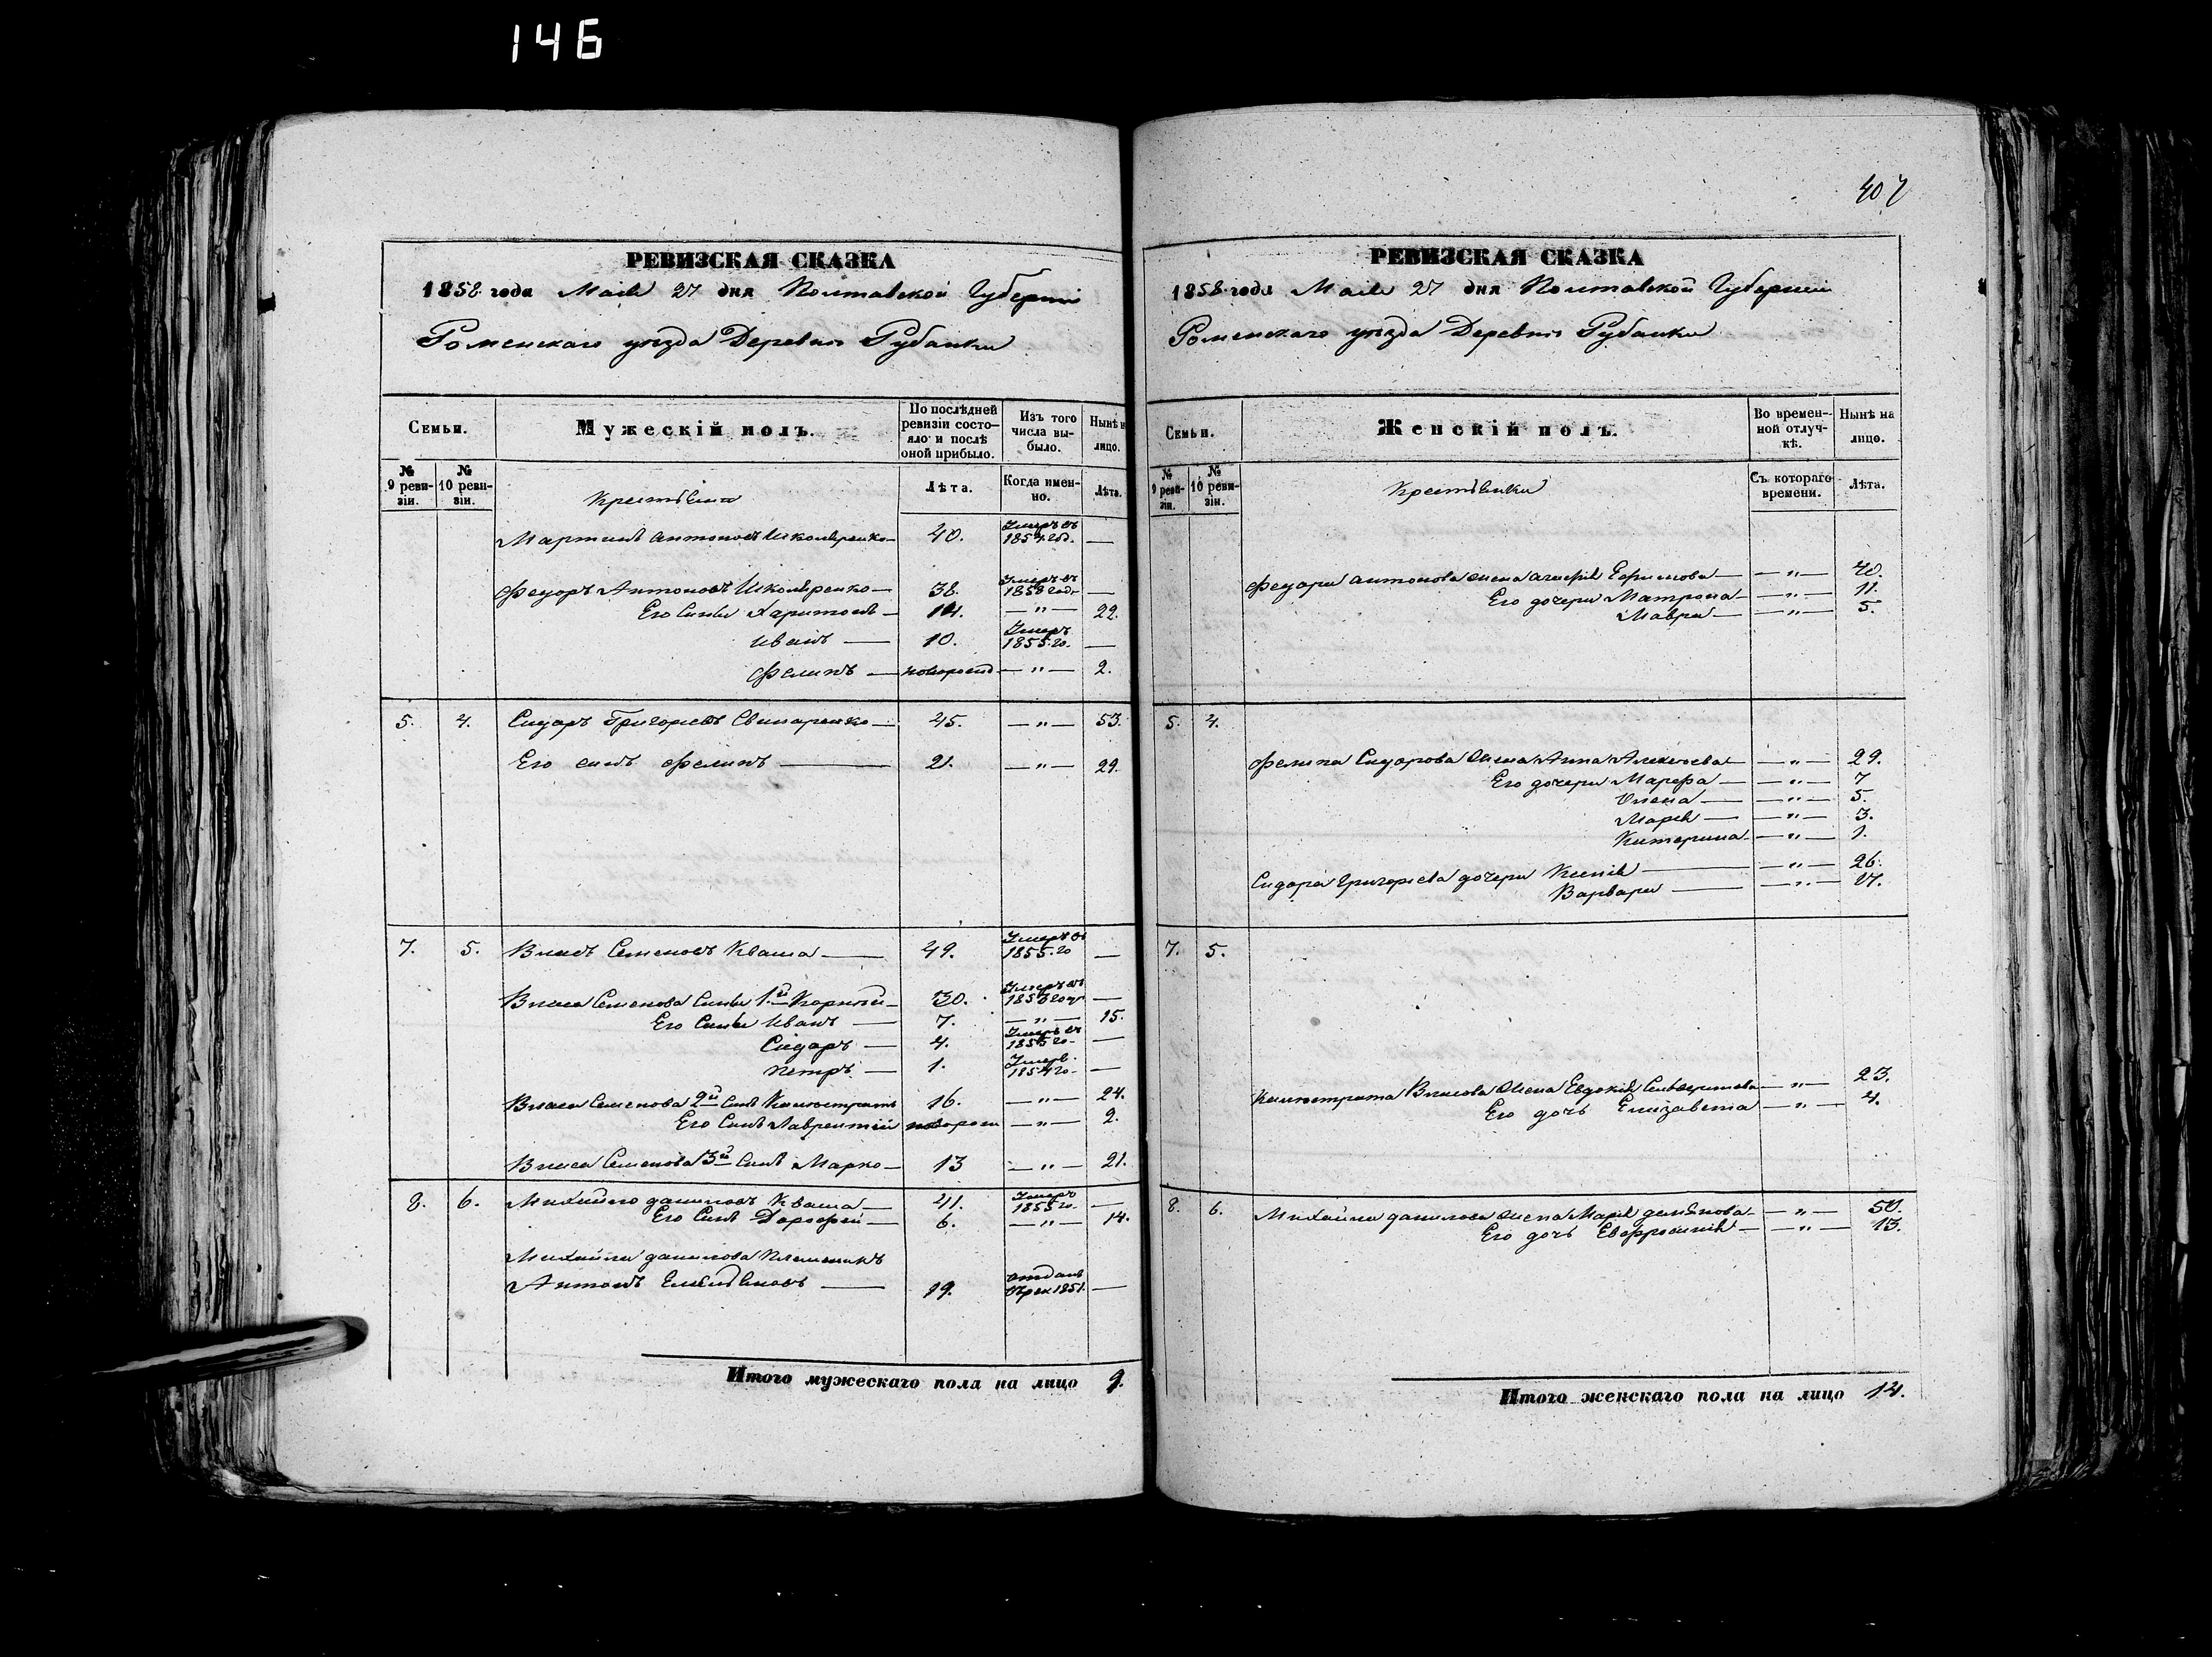 146
407
РЕВИЗСКАЯ СКАЗКА
1858 года Маія 27 дня Полтавской Губерніи
Роменскаго уѣзда Деревни Рубанки
Семьи.
Мужескій полъ.
По послѣдней ревизіи состояло и послѣ оной прибыло.
Изъ того числа выбыло.
Нынѣ на лицо.
№ 9 ревизіи.
№ 10 ревизіи.
Лѣта.
Когда именно.
Лѣта.
Крестьяна
Мартинъ Антоновъ 40. Умеръ въ 1854 год. —
Федоръ Антоновъ 38. Умеръ въ 1858 год. —
Его Сыны Харитонъ 14. — " — 22.
Иванъ — 10. Умеръ 1855 го. —
Филипъ — новорожд — " — 2.
5. 4. Сидоръ Григорьевъ Свинаренко 45. — " — 53.
Его сынъ Филипъ — 21. — " — 29.
7. 5. Власъ Семеновъ Кваша — 49. Умеръ въ 1855 го —
Власа Семенова Сыны 1й Корній 30. Умеръ въ —
Его Сыны Иванъ — 7. — " — 15.
Сидоръ — 4. Умеръ въ 1855 го —
Петръ — 1. Умеръ 1854 го —
Власа Семенова 2й Сынъ Калистратъ 16. — " — 24.
Его Сынъ Лаврентій новорож — " — 2.
Власа Семенова 3й Сынъ Марко 13 — " — 21.
8. 6. Михайло Даниловъ Кваша 41. Умеръ 1855 го. —
Его Сынъ Дорофей 6. — " — 14.
Михайла Данилова Племяникъ
Антонъ Емельяновъ — 19. отданъ въ рек 1851. —
Итого мужескаго пола на лицо 9.
РЕВИЗСКАЯ СКАЗКА
1858 года Маія 27 дня Полтавской Губерніи
Роменскаго уѣзда Деревни Рубанки
Семьи.
Женскій полъ.
Во временной отлучкѣ.
Нынѣ на лицо.
№ 9 ревизіи.
№ 10 ревизіи.
Съ котораго времени.
Лѣта.
Крестьянки
Федора Антонова жена Агафія Ефимова — " — 40.
Его дочери Матрона — " — 11.
Мавра — " — 5.
5. 4.
Филипа Сидорова жена Анна Алексѣева — " — 29.
Его дочери Марфа — " — 7
Олена — " — 5.
Марія — " — 3.
Катерина — " — 1.
Сидора Григорьева дочери Ксенія — " — 26.
Варвара — " — 17.
7. 5.
Калистрата Власова жена Евдокія Сильвестрова — " — 23.
Его дочь Елизавета — " — 4.
8. 6. Михайла Данилова жена Марія Демьянова — " — 50.
Его дочь Евфросинія — " — 13.
Итого женскаго пола на лицо 14.